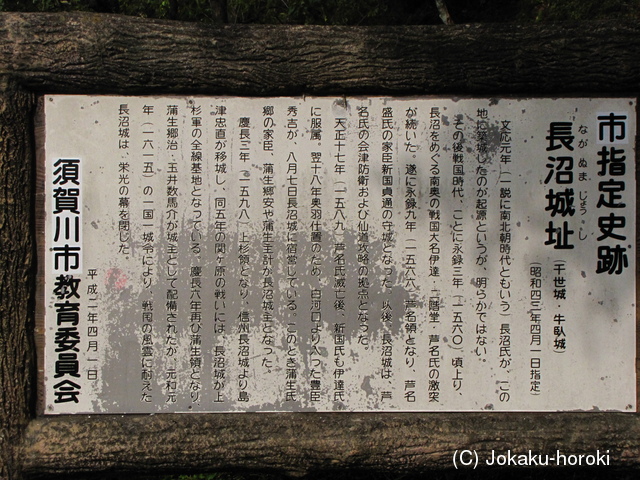 市指定史跡
ながぬまじょうし
長沼城址
(千世城・牛臥城)
(昭和四三年四月一日指定)
文応元年(一説に南北朝時代ともいう)長沼氏が、この
地に築城したのが起源というが、明らかではない。
その後戦国時代、ことに永録三年(一五六〇)頃より、
長沼をめぐる南奥の戦国大名伊達・二階堂・芦名氏の激突
が続いた。遂に永録九年(一五六六)芦名領となり、芦名
盛氏の家臣新国貞通の守城となった。以後、長沼城は、芦
名氏の会津防衛および仙道攻略の拠点となった。
天正十七年(一五八九)芦名氏滅亡後、新国氏も伊達氏
に服属。翌十八年奥羽仕置のため、白河口より入った豊臣
秀吉が、八月七日長沼城に宿営している。このとき蒲生氏
郷の家臣、蒲生郷安や蒲生主計が長沼城主となった。
慶長三年(一五九八)上杉領となり、信州長沼城より島
津忠直が移城し、同五年の関ヶ原の戦いには、長沼城が上
杉軍の全線基地となっている。慶長六年再び蒲生領となり、
蒲生郷治・玉井数馬介が城主として配備されたが、元和元
年(一六一五)の一国一城令により、戦国の風雲に耐えた
長沼城は、栄光の幕を閉じた。
平成二年四月一日
須賀川市教育委員会
(C) Jokaku-horoki